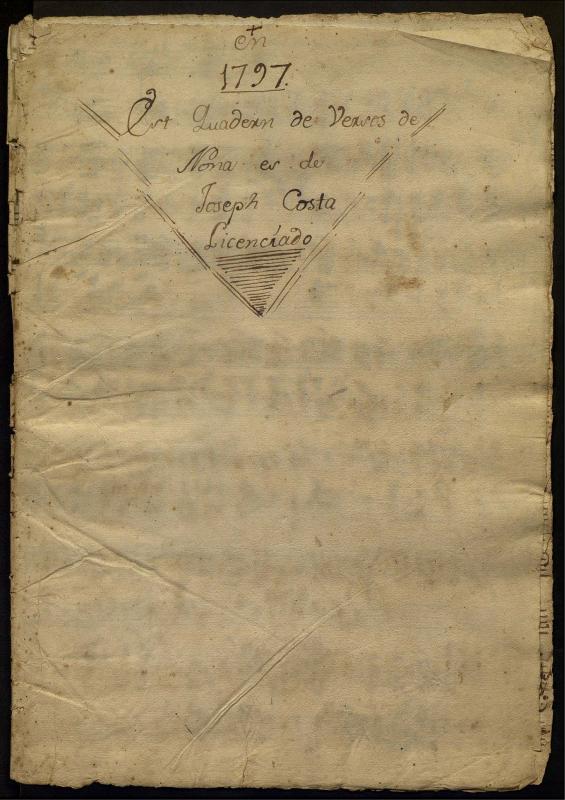 En
1797.
Est Quadern de Verses de
Nona es de
Joseph Costa
Licenciado